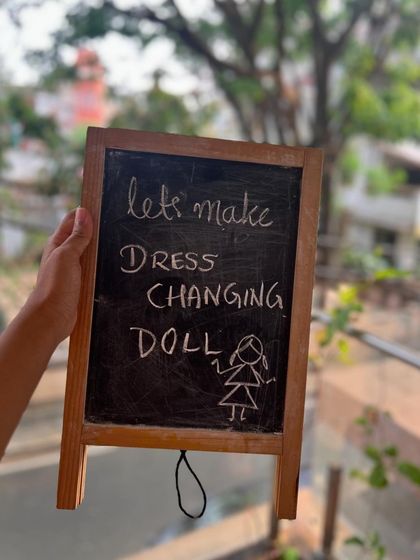 let's make
DRESS
CHANGING
DOLL